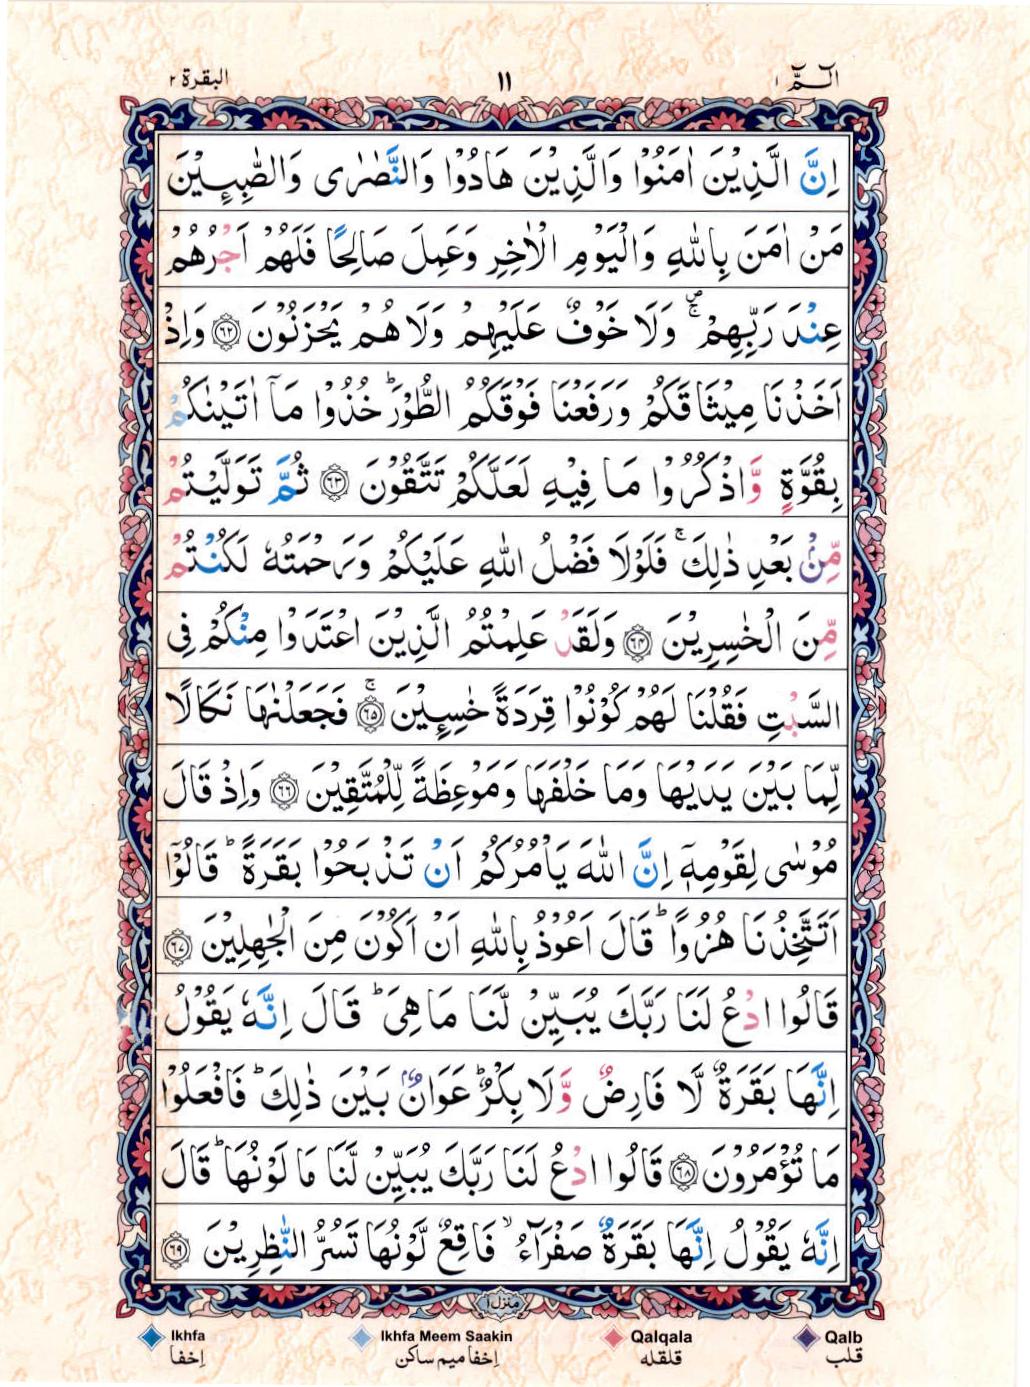 الٓمّٓ ١
١١
البقرة ٢
اِنَّ الَّذِیْنَ اٰمَنُوْا وَالَّذِیْنَ هَادُوْا وَالنَّصٰرٰی وَالصّٰبِـِٕیْنَ
مَنْ اٰمَنَ بِاللّٰهِ وَالْیَوْمِ الْاٰخِرِ وَعَمِلَ صَالِحًا فَلَهُمْ اَجْرُهُمْ
عِنْدَ رَبِّهِمْ ۪ۚ وَلَا خَوْفٌ عَلَیْهِمْ وَلَا هُمْ یَحْزَنُوْنَ ﴿۶۲﴾ وَاِذْ
اَخَذْنَا مِیْثَاقَكُمْ وَرَفَعْنَا فَوْقَكُمُ الطُّوْرَ ؕ خُذُوْا مَاۤ اٰتَیْنٰكُمْ
بِقُوَّةٍ وَّاذْكُرُوْا مَا فِیْهِ لَعَلَّكُمْ تَتَّقُوْنَ ﴿۶۳﴾ ثُمَّ تَوَلَّیْتُمْ
مِّنْۢ بَعْدِ ذٰلِكَ ۚ فَلَوْلَا فَضْلُ اللّٰهِ عَلَیْكُمْ وَرَحْمَتُهٗ لَكُنْتُمْ
مِّنَ الْخٰسِرِیْنَ ﴿۶۴﴾ وَلَقَدْ عَلِمْتُمُ الَّذِیْنَ اعْتَدَوْا مِنْكُمْ فِی
السَّبْتِ فَقُلْنَا لَهُمْ كُوْنُوْا قِرَدَةً خٰسِـِٕیْنَ ﴿۶۵﴾ۚ فَجَعَلْنٰهَا نَكَالًا
لِّمَا بَیْنَ یَدَیْهَا وَمَا خَلْفَهَا وَمَوْعِظَةً لِّلْمُتَّقِیْنَ ﴿۶۶﴾ وَاِذْ قَالَ
مُوْسٰی لِقَوْمِهٖۤ اِنَّ اللّٰهَ یَاْمُرُكُمْ اَنْ تَذْبَحُوْا بَقَرَةً ؕ قَالُوْۤا
اَتَتَّخِذُنَا هُزُوًا ؕ قَالَ اَعُوْذُ بِاللّٰهِ اَنْ اَكُوْنَ مِنَ الْجٰهِلِیْنَ ﴿۶۷﴾
قَالُوا ادْعُ لَنَا رَبَّكَ یُبَیِّنْ لَّنَا مَا هِیَ ؕ قَالَ اِنَّهٗ یَقُوْلُ
اِنَّهَا بَقَرَةٌ لَّا فَارِضٌ وَّلَا بِكْرٌ ؕ عَوَانٌۢ بَیْنَ ذٰلِكَ ؕ فَافْعَلُوْا
مَا تُؤْمَرُوْنَ ﴿۶۸﴾ قَالُوا ادْعُ لَنَا رَبَّكَ یُبَیِّنْ لَّنَا مَا لَوْنُهَا ؕ قَالَ
اِنَّهٗ یَقُوْلُ اِنَّهَا بَقَرَةٌ صَفْرَآءُ ۙ فَاقِعٌ لَّوْنُهَا تَسُرُّ النّٰظِرِیْنَ ﴿۶۹﴾
منزل ١
Ikhfa
Ikhfa Meem Saakin
Qalqala
Qalb
اِخفا
اِخفا میم ساکن
قلقله
قلب